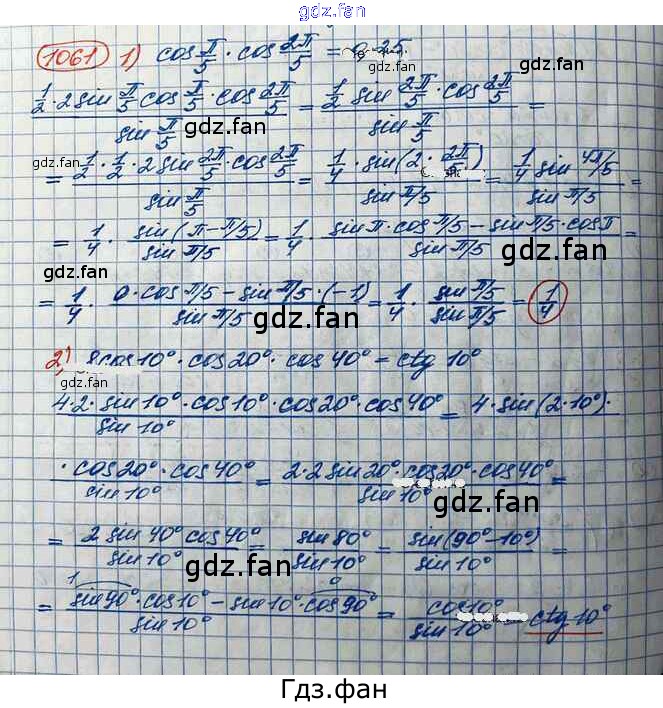 gdz.fan
gdz.fan
1061 1) cos π/5 · cos 2π/5 = 0,25
(1/2 · 2 sin π/5 cos π/5 · cos 2π/5) / (sin π/5) = (1/2 sin 2π/5 · cos 2π/5) / (sin π/5) =
gdz.fan
gdz.fan
= (1/2 · 1/2 · 2 sin 2π/5 · cos 2π/5) / (sin π/5) = (1/4 · sin(2 · 2π/5)) / (sin π/5) = (1/4 sin 4π/5) / (sin π/5) =
= 1/4 · sin(π - π/5) / sin π/5 = 1/4 · (sin π · cos π/5 - sin π/5 · cos π) / sin π/5 =
gdz.fan
gdz.fan
= 1/4 · (0 · cos π/5 - sin π/5 · (-1)) / sin π/5 = 1/4 · sin π/5 / sin π/5 = 1/4
gdz.fan
2) 8 cos 10° · cos 20° · cos 40° = ctg 10°
gdz.fan
gdz.fan
(4 · 2 · sin 10° · cos 10° · cos 20° · cos 40°) / sin 10° = 4 · sin(2 · 10°) ·
· cos 20° · cos 40° / sin 10° = (2 · 2 sin 20° · cos 20° · cos 40°) / sin 10° =
gdz.fan
gdz.fan
= (2 sin 40° cos 40°) / sin 10° = sin 80° / sin 10° = sin(90° - 10°) / sin 10° =
gdz.fan
gdz.fan
1 0
= (sin 90° · cos 10° - sin 10° · cos 90°) / sin 10° = cos 10° / sin 10° = ctg 10°
gdz.fan
Гдз.фан